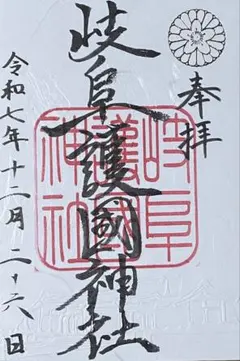 奉拝
岐阜護國神社
令和七年十二月二十六日
岐阜
護國
神社